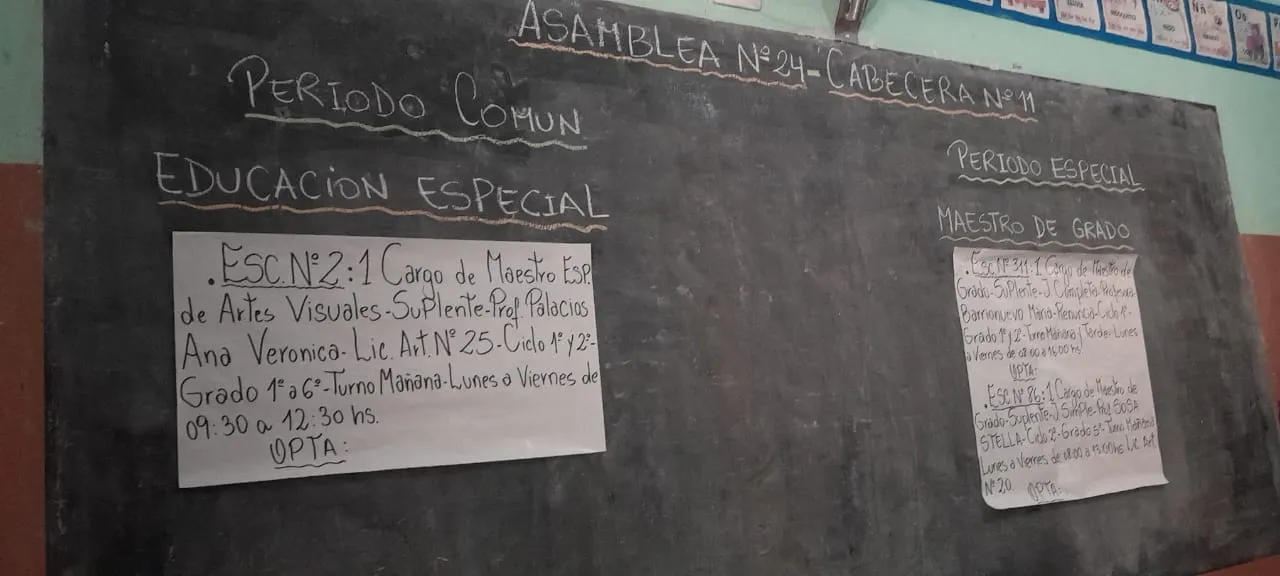 ASAMBLEA Nº 24 - CABECERA Nº 11
PERIODO COMUN
EDUCACION ESPECIAL
. ESC. Nº 2: 1 Cargo de Maestro ESP.
de Artes Visuales-Suplente-Prof. Palacios
Ana Veronica- Lic. Art. Nº 25-Ciclo 1º y 2º-
Grado 1º a 6º-Turno Mañana-Lunes a Viernes de
09:30 a 12:30 hs.
OPTA:
PERIODO ESPECIAL
MAESTRO DE GRADO
. ESC Nº 311: 1 Cargo de Maestro de
Grado-Suplente-J. Completa-Profesora
Barrionuevo Maria-Renuncia-Ciclo 1º-
Grado 1º y 2º-Turno Mañana y Tarde-Lunes
a Viernes de 08:00 a 16:00 hs.
OPTA:
. ESC Nº 86: 1 Cargo de Maestro de
Grado-Suplente-J. Simple-Prof. SOSA
STELLA-Ciclo 2º-Grado 5º-Turno Mañana
Lunes a Viernes de 08:00 a 13:00 hs Lic. Art
Nº 20 OPTA: